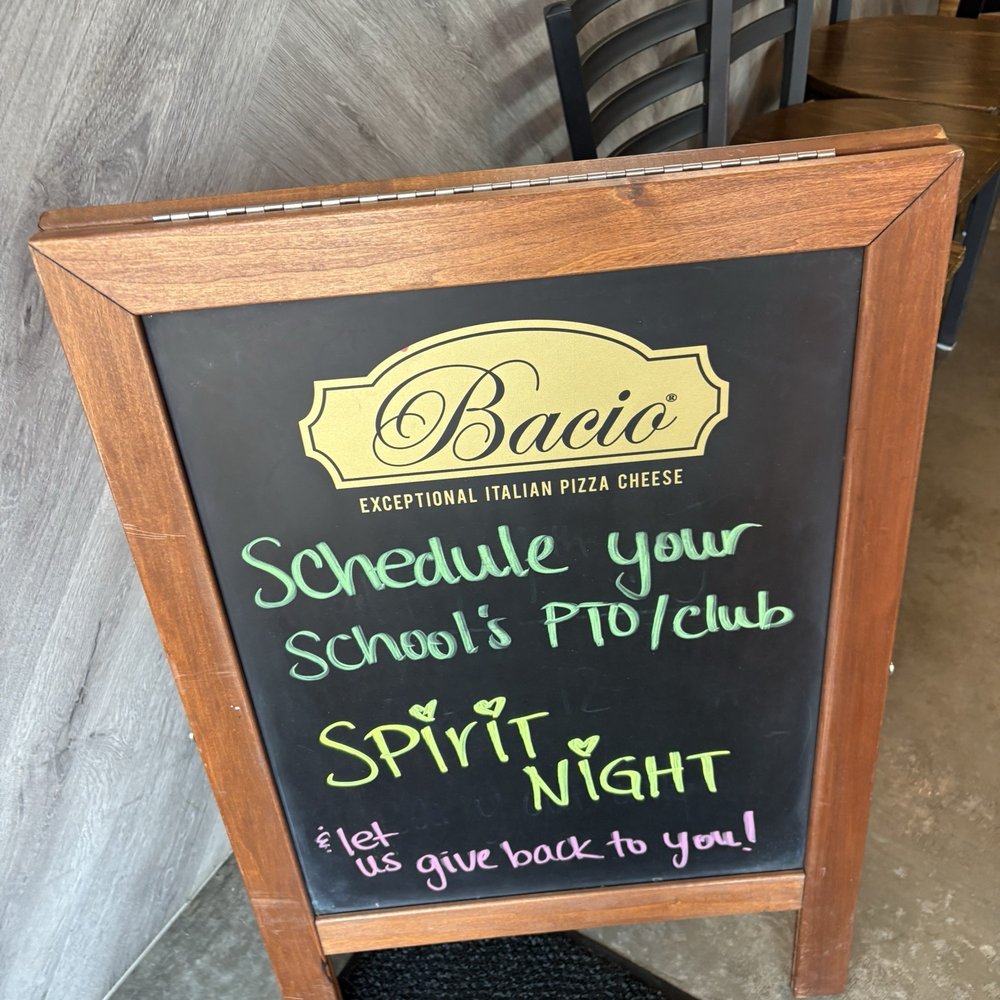 Bacio®
EXCEPTIONAL ITALIAN PIZZA CHEESE
Schedule your
School's PTO/club
SPiriT
NiGHT
& let
us give back to you!